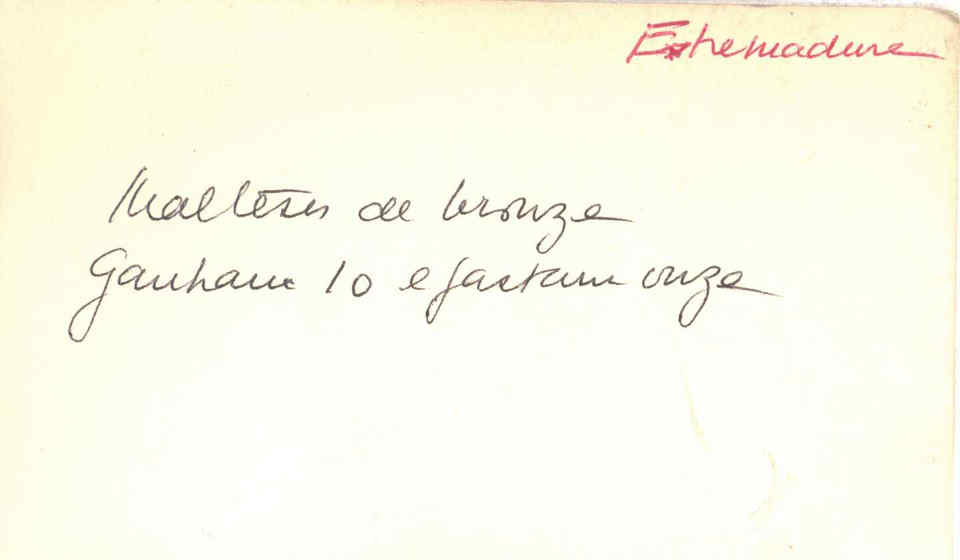 Estremadura
Maltêses de bronze
Ganham 10 e gastam onze